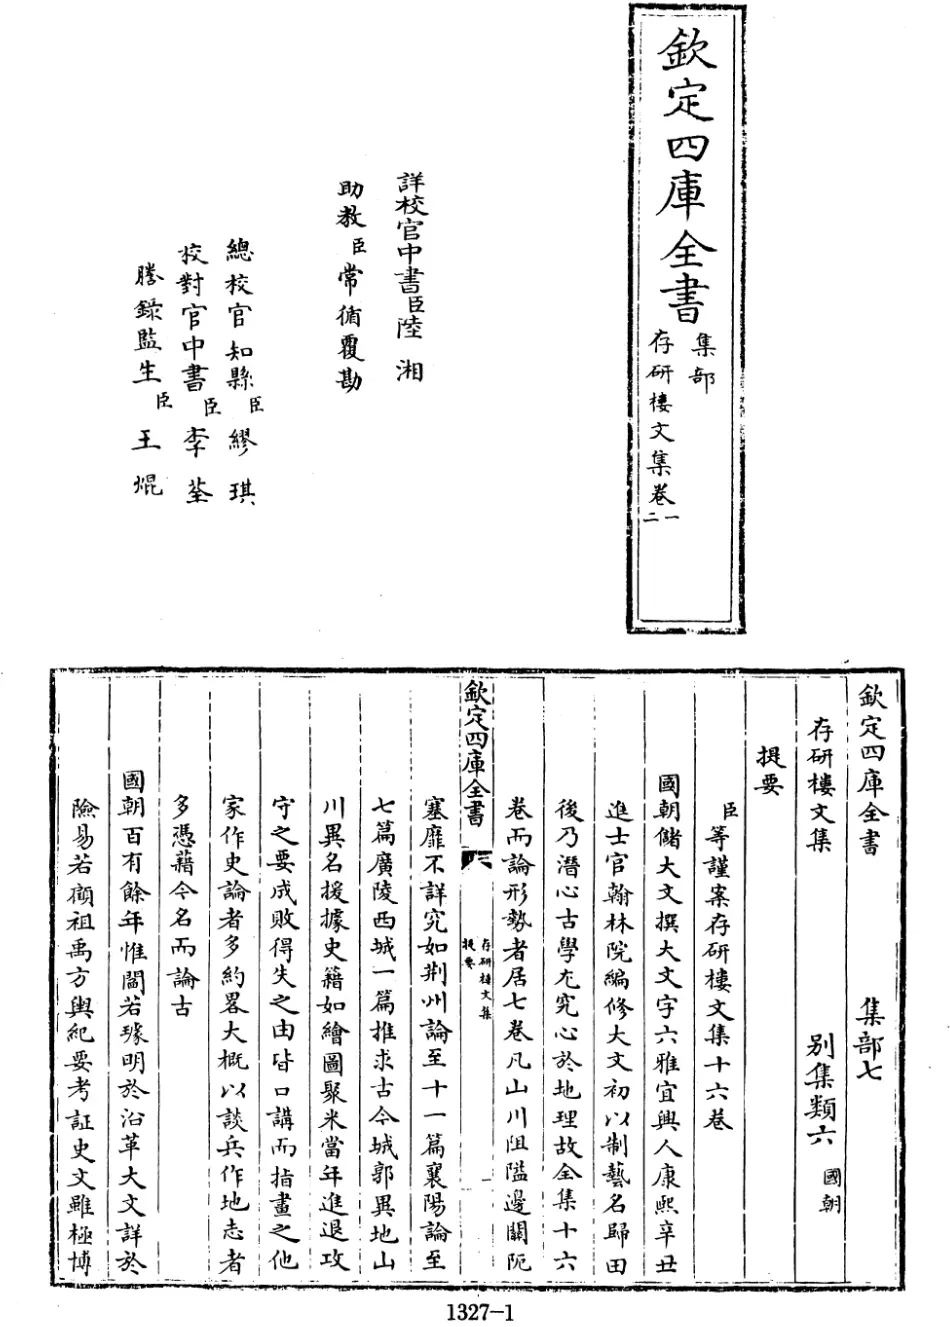 欽定四庫全書
集部
存研樓文集卷一
二
詳校官中書臣陸湘
助教臣常循覆勘
總校官知縣臣繆琪
校對官中書臣李荃
謄錄監生臣王焜
欽定四庫全書 集部七
存研樓文集 別集類六 國朝
提要
臣等謹案存研樓文集十六卷
國朝儲大文撰大文字六雅宜興人康熙辛丑
進士官翰林院編修大文初以制藝名歸田
後乃潛心古學尤究心於地理故全集十六
卷而論形勢者居七卷凡山川阻隘邊關阨
欽定四庫全書
存研樓文集
提要
一
塞靡不詳究如荆州論至十一篇襄陽論至
七篇廣陵西城一篇推求古今城郭異地山
川異名援據史籍如繪圖聚米當年進退攻
守之要成敗得失之由皆口講而指畫之他
家作史論者多約畧大概以談兵作地志者
多憑藉今名而論古
國朝百有餘年惟閻若璩明於沿革大文詳於
險易若顧祖禹方輿紀要考証史文雖極博
1327-1